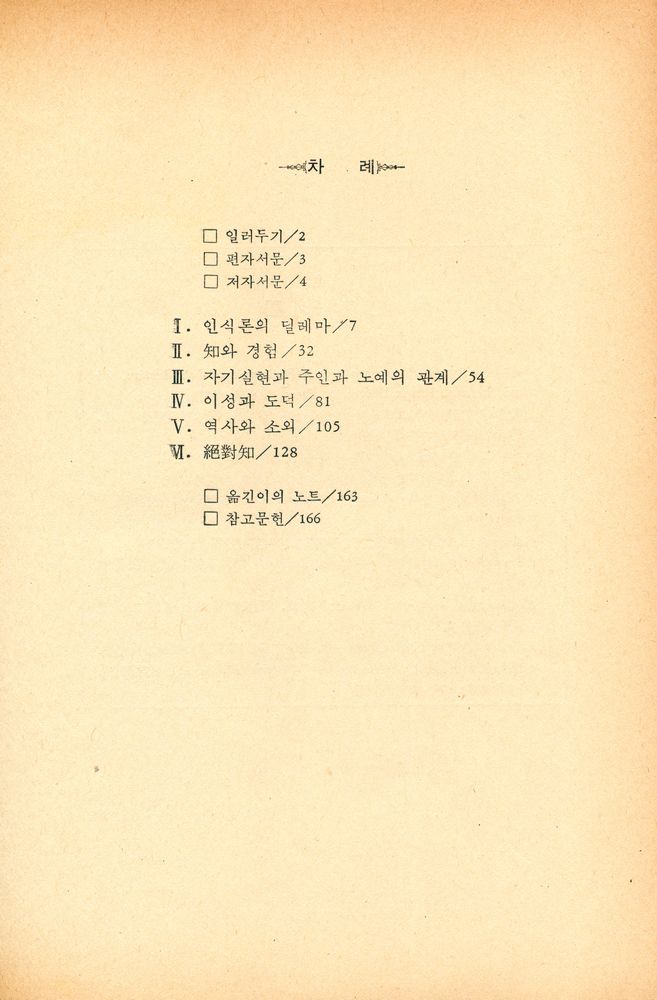 차 례
□ 일러두기／2
□ 편자서문／3
□ 저자서문／4
Ⅰ. 인식론의 딜레마／7
Ⅱ. 知와 경험／32
Ⅲ. 자기실현과 주인과 노예의 관계／54
Ⅳ. 이성과 도덕／81
Ⅴ. 역사와 소외／105
Ⅵ. 絕對知／128
□ 옮긴이의 노트／163
□ 참고문헌／166